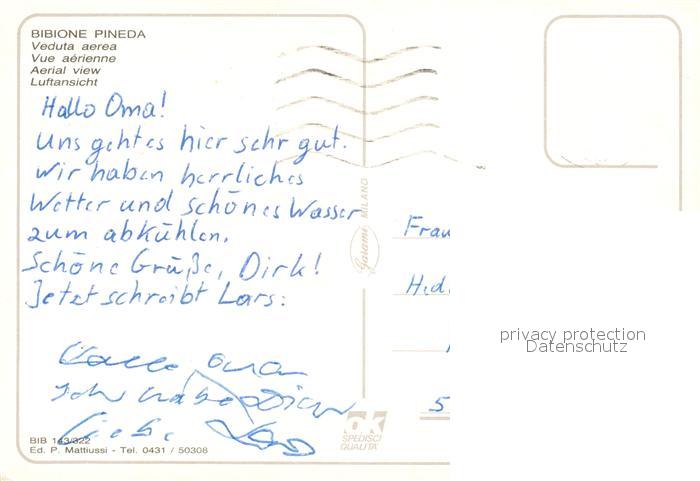 BIBIONE PINEDA
Veduta aerea
Vue aérienne
Aerial view
Luftansicht
Hallo Oma!
Uns geht es hier sehr gut.
Wir haben herrliches
Wetter und schönes Wasser
zum abkühlen.
Schöne Grüße, Dirk!
Jetzt schreibt Lars:
Hallo oma
Ich habe Dich
Liebe Lars
BIB 143/322
Ed. P. Mattiussi - Tel. 0431 / 50308
MILANO
ok
SPEDISCI
QUALITA'
Frau
Hed
5
privacy protection
Datenschutz